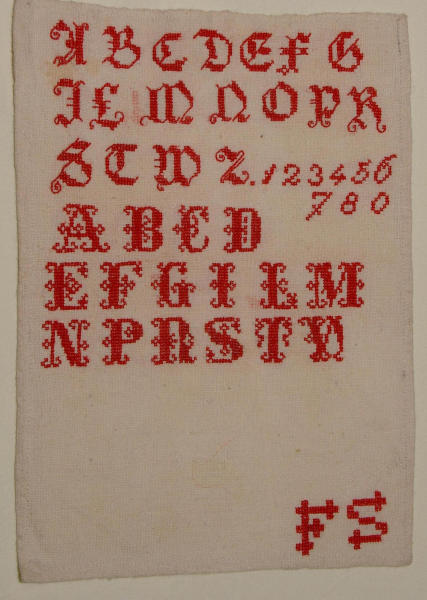 A B C D E F G
I L M N O P R
S T W Z. 1 2 3 4 5 6
7 8 0
A B C D
E F G I L M
N P R S T W
F S